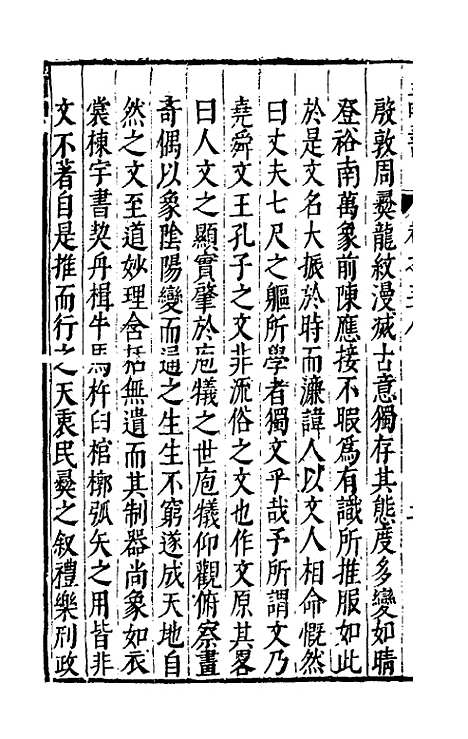 殷敦周彝龍紋漫滅古意獨存其態度多變如晴
登裕南萬象前陳應接不暇為有識所推服如此
於是文名大振於時而濂諱人以文人相命慨然
曰丈夫七尺之軀所學者獨文乎哉予所謂文乃
堯舜文王孔子之文非流俗之文也作文原其畧
曰人文之顯實肇於庖犧之世庖犧仰觀俯察畫
奇偶以象陰陽變而通之生生不窮遂成天地自
然之文至道妙理含括無遺而其制器尚象如衣
裳棟宇書契舟楫牛馬杵臼棺槨弧矢之用皆非
文不著自是推而行之天衷民彝之叙禮樂刑政